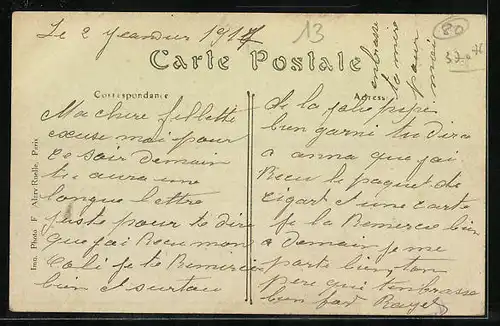 Le 2 Jeanvier 1917
13
80
Carte Postale
Correspondance
Adresse
Ma chere fillette
excuse moi pour
ce soir demain
tu aura une
longue lettre
juste pour te dire
que j'ai Recu mon
Coli je te Remercie
bien et surtou
de la jolie pipe
bien garni tu dira
a anna que j'ai
Recu le paquet de
cigart et une carte
je la Remercie bien
a demain je me
porte bien, ton
pere qui t'embrasse
bien fort
embrasse
ta mere
pour
moi
Imp. Photo F Paris